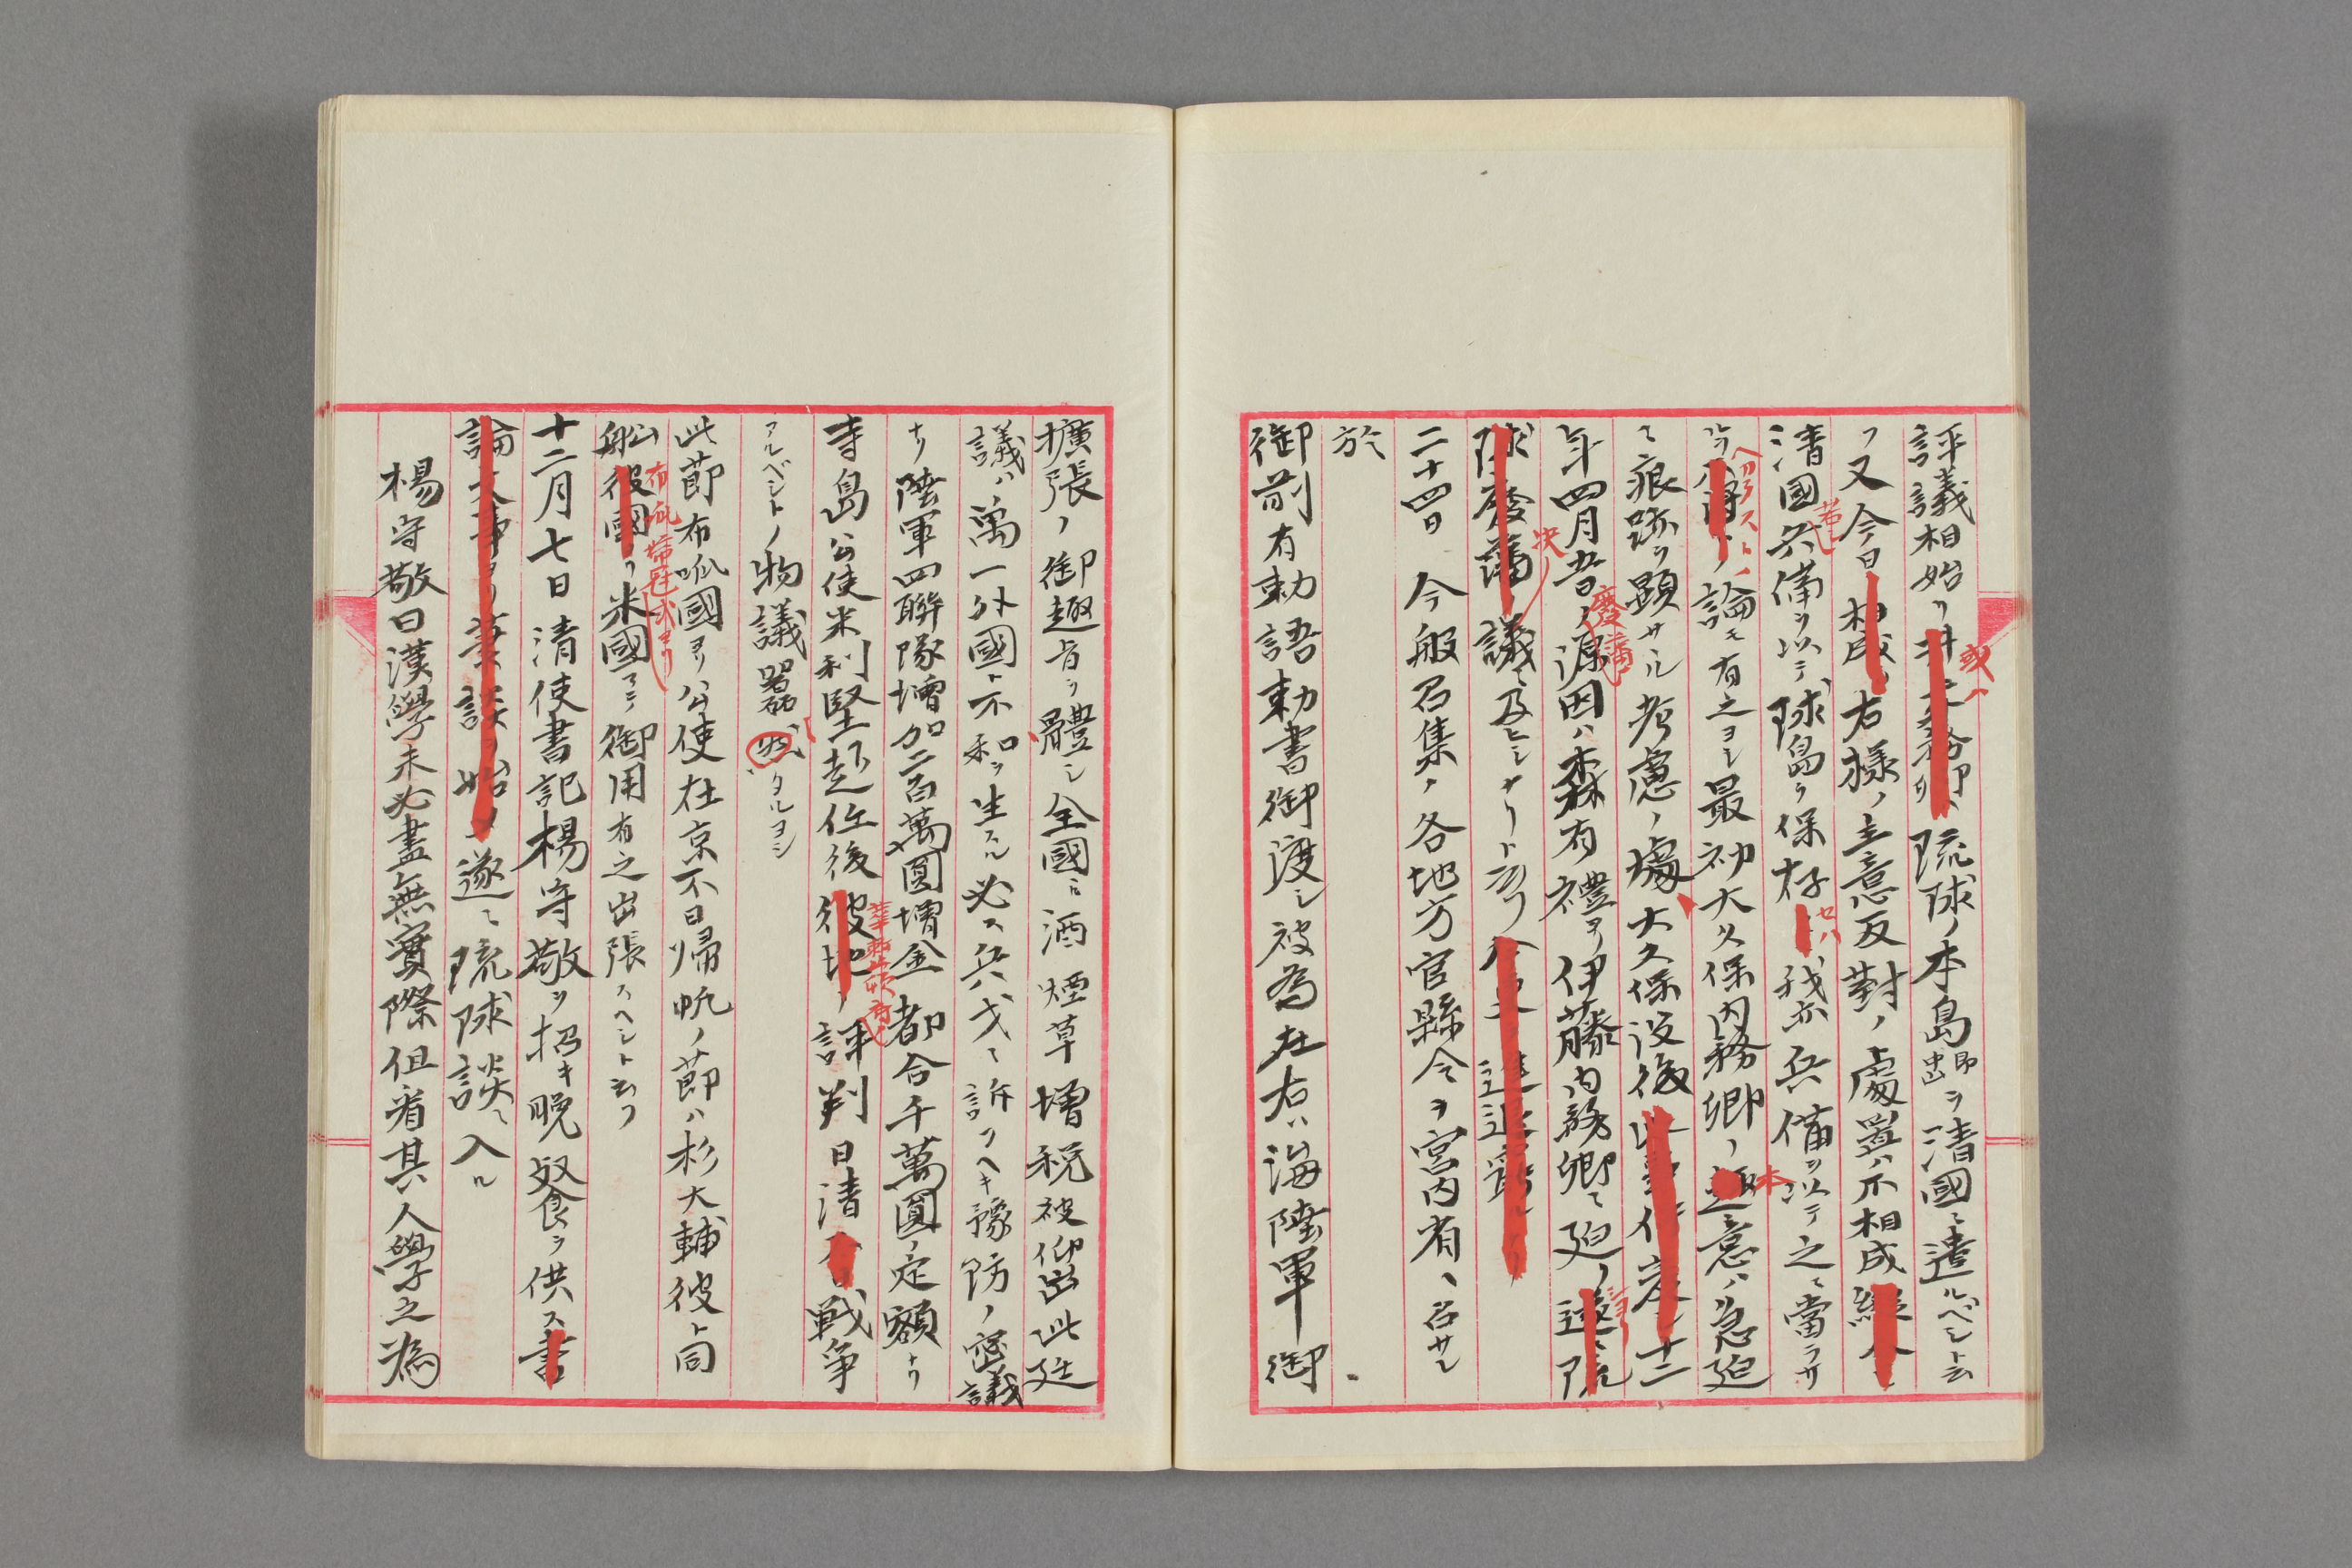 評議相始リ 琉球ノ本島即中山ヲ清國ニ遣ルベシト云
フ又今日 右様ノ主意反對ノ處置ハ不相成
清國兵備ヲ以テ球島ヲ保存セハ我亦兵備ヲ以テ之ニ當ラサ
ヘカラストノ論モ有之ヨシ最初大久保内務卿ノ本意ハ急廹
ニ痕跡ヲ顕サヽル考慮ノ處大久保没後 十二
年四月廢藩ノ源因ハ森有禮ヨリ伊藤内務卿ニ廹リ
決議ニ及ヒシナリト云フ
二十四日 今般召集ノ各地方官縣令ヲ宮内省ヘ召サレ
於
御前有勅語勅書御渡シ被為在右ハ海陸軍御
擴張ノ御趣旨ヲ體シ全國ニ酒煙草増税被仰出此廷
議ハ萬一外國ト不和ヲ生スル必ス兵弋ニ訴フヘキ豫防ノ密議
ナリ陸軍四聯隊増加二百萬圓増金都合千萬圓ノ定額ナリ
寺島公使米利堅赴任後華聖頓府ノ評判日清戦争
アルベシトノ物議囂然タルヨシ
此節布哇國ヨリ公使在京不日帰帆ノ節ハ杉大輔彼ト同
船布哇帰途ヨリ米國マテ御用有之出張スヘシト云フ
十二月七日清使書記楊守敬ヲ招キ晩餐食ヲ供ス
遂ニ琉球談ニ入ル
楊守敬曰漢學未必盡無實際但看其人學之為